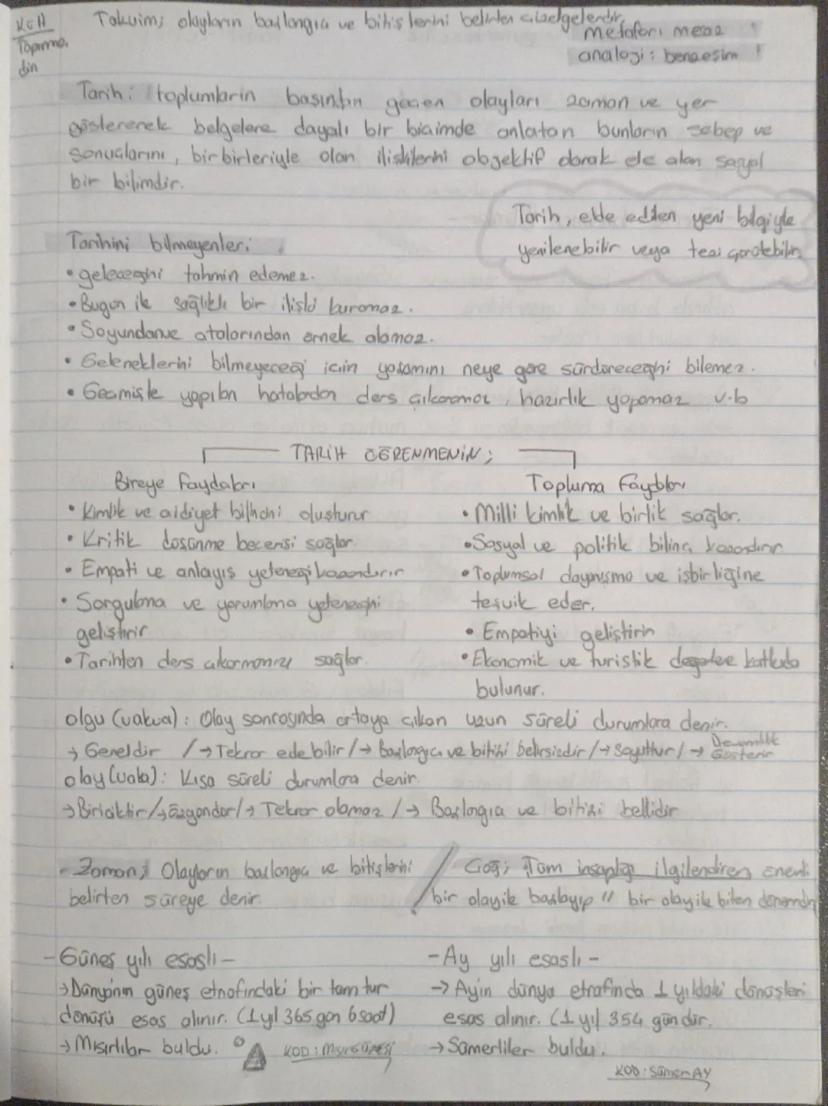 Takvim; olayların başlangıcı ve bitişlerini belirten çizelgelerdir.
Tapınma
din
metafor: mecaz
analoji: benzeşim
Tarih: toplumların başından geçen olayları zaman ve yer
göstererek belgelere dayalı bir biçimde anlatan bunların sebep ve
sonuçlarını, birbirleriyle olan ilişkilerini objektif olarak ele alan sosyal
bir bilimdir.
Tarih, elde edilen yeni bilgiyle
yenilenebilir veya
Tarihini bilmeyenler;
• geleceğini tahmin edemez.
• Bugün ile sağlıklı bir ilişki kuramaz.
• Soyundan ve atalarından örnek alamaz.
• Geleneklerini bilmeyeceği için yaşamını neye göre sürdüreceğini bilemez.
• Geçmişte yapılan hatalardan ders çıkaramaz, hazırlık yapamaz v.b
TARİH ÖĞRENMENİN;
Bireye Faydaları
• Kimlik ve aidiyet bilinci oluşturur
• Kritik düşünme becerisi sağlar
• Empati ve anlayış yeteneği kazandırır
• Sorgulama ve yorumlama yeteneğini
geliştirir
• Tarihten ders çıkarmamızı sağlar.
Topluma Faydaları
• Milli kimlik ve birlik sağlar.
• Sosyal ve politik bilinç kazandırır
• Toplumsal dayanışma ve işbirliğine
teşvik eder.
• Empatiyi geliştirir
• Ekonomik ve turistik değerlere katkıda
bulunur.
olgu (vakıa): Olay sonrasında ortaya çıkan uzun süreli durumlara denir.
→ Geneldir / → Tekrar edebilir / → Başlangıcı ve bitişi belirsizdir / → Soyuttur / → Devamlılık Gösterir
olay (vaka): Kısa süreli durumlara denir.
→ Biriciktir / → özgündür / → Tekrar olamaz / → Başlangıcı ve bitişi bellidir
- Zaman; Olayların başlangıcı ve bitişlerini
belirten süreye denir.
Çağ; Tüm insanlığı ilgilendiren önemli
bir olayla başlayıp " bir olayla biten dönemdir
- Güneş yılı esaslı -
→ Dünyanın güneş etrafındaki bir tam tur
dönüşü esas alınır. (1 yıl 365 gün 6 saat)
→ Mısırlılar buldu.
KOD: Mısır Güneşi
- Ay yılı esaslı -
→ Ayın dünya etrafında 1 yıldaki dönüşleri
esas alınır. (1 yıl 354 gündür.
→ Sümerliler buldu.
KOD: Sümer AY